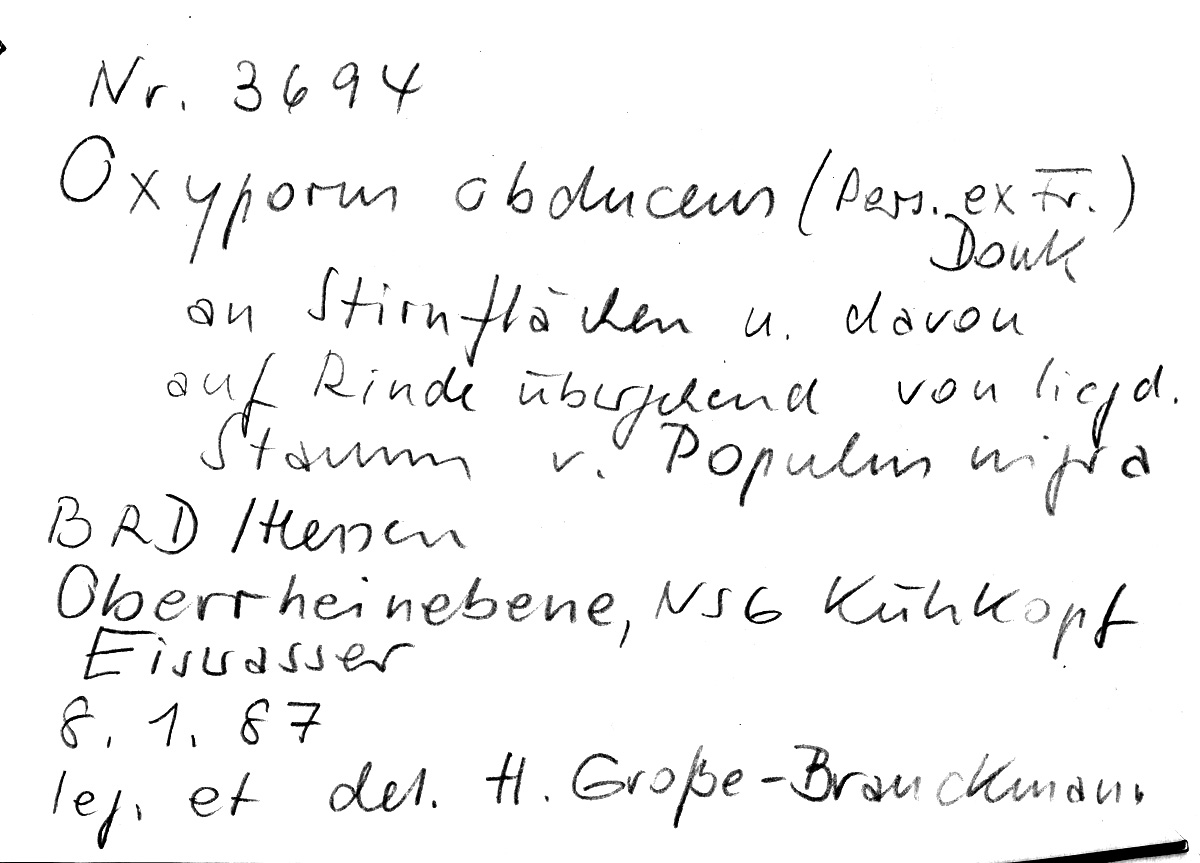 Nr. 3694
Oxyporus obducens (Pers. ex Fr.)
Donk
an Stirnflächen u. davon
auf Rinde übergehend von liegd.
Stamm v. Populus nigra
BRD/Hessen
Oberrheinebene, NSG Kühkopf
Eiswasser
8. 1. 87
leg. et det. H. Große-Brauckmann